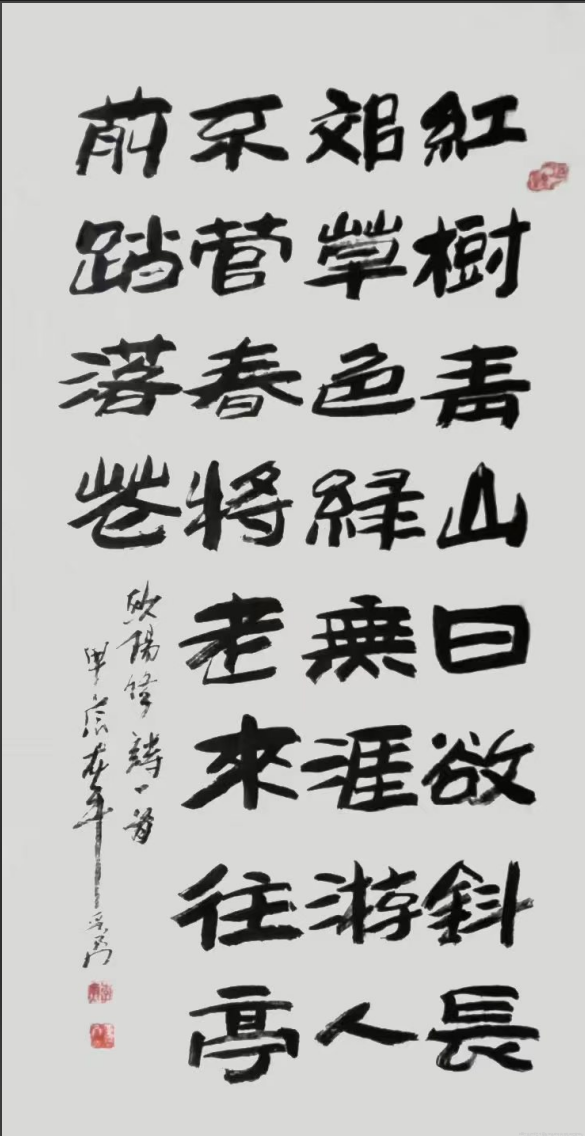 紅樹青山日欲斜長
郊草色綠無涯游人
不管春將老來往亭
前踏落花
欧陽修詩一首
甲辰龙年